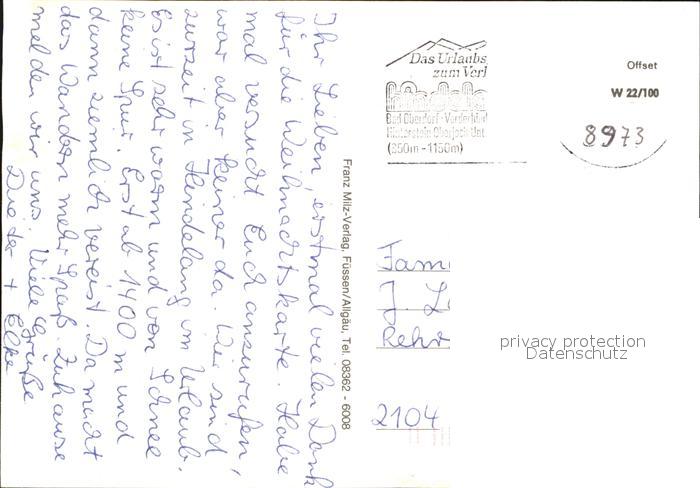 Ihr Lieben, erstmal vielen Dank
für die Weihnachtskarte. Habe
mal versucht Euch anzurufen,
war aber keiner da. Wir sind
zurzeit in Hindelang im Urlaub.
Es ist sehr warm und von Schnee
keine Spur. Erst ab 1400 m und
dann ziemlich vereist. Da macht
das Wandern mehr Spaß. Zuhause
melden wir uns. Viele Grüße
Dieter + Elke
Franz Milz-Verlag, Füssen/Allgäu, Tel. 08362 - 6008
Das Urlaubs
zum Verl
Bad Oberdorf-Vorderhind
Hinterstein Oberjoch Unt
(850m-1150m)
Offset
W 22/100
8973
Fami
J. L
Rehr
2104
privacy protection
Datenschutz